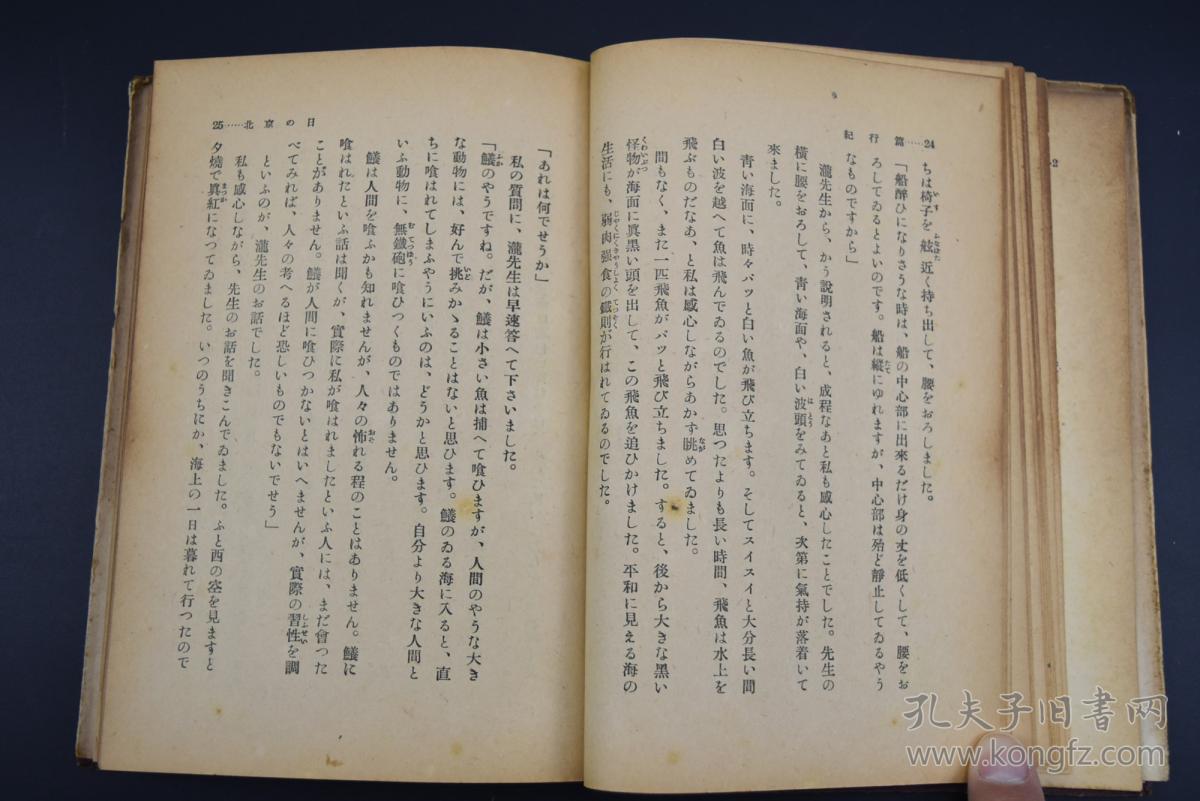 24……篇行紀
ちは椅子を舷近く持ち出して、腰をおろしました。
「船醉ひになりさうな時は、船の中心部に出來るだけ身の丈を低くして、腰をお
ろしてゐるとよいのです。船は縱にゆれますが、中心部は殆ど靜止してゐるやう
なものですから」
瀧先生から、かう説明されると、成程なあと私も感心したことでした。先生の
横に腰をおろして、青い海面や、白い波頭をみてゐると、次第に氣持が落着いて
來ました。
青い海面に、時々パッと白い魚が飛び立ちます。そしてスイスイと大分長い間
白い波を越へて魚は飛んでゐるのでした。思つたよりも長い時間、飛魚は水上を
飛ぶものだなあ、と私は感心しながらあかず眺めてゐました。
間もなく、また一匹飛魚がパッと飛び立ちました。すると、後から大きな黑い
怪物が海面に眞黑い頭を出して、この飛魚を追ひかけました。平和に見える海の
生活にも、弱肉强食の鐵則が行はれてゐるのでした。
25……北京の日
「あれは何でせうか」
私の質問に、瀧先生は早速答へて下さいました。
「鱶のやうですね。だが、鱶は小さい魚は捕へて喰ひますが、人間のやうな大き
な動物には、好んで挑みかゝることはないと思ひます。鱶のゐる海に入ると、直
ちに喰はれてしまふやうにいふのは、どうかと思ひます。自分より大きな人間と
いふ動物に、無鐵砲に喰ひつくものではありません。
鱶は人間を喰ふかも知れませんが、人々の怖れる程のことはありません。鱶に
喰はれたといふ話は聞くが、實際に私が喰はれましたといふ人には、まだ會つた
ことがありません。鱶が人間に喰ひつかないとはいへませんが、實際の習性を調
べてみれば、人々の考へるほど恐しいものでもないでせう」
といふのが、瀧先生のお話でした。
私も感心しながら、先生のお話を聞きこんでゐました。ふと西の空を見ますと
夕燒で眞紅になつてゐました。いつのうちにか、海上の一日は暮れて行つたので
孔夫子旧书网
www.kongfz.com